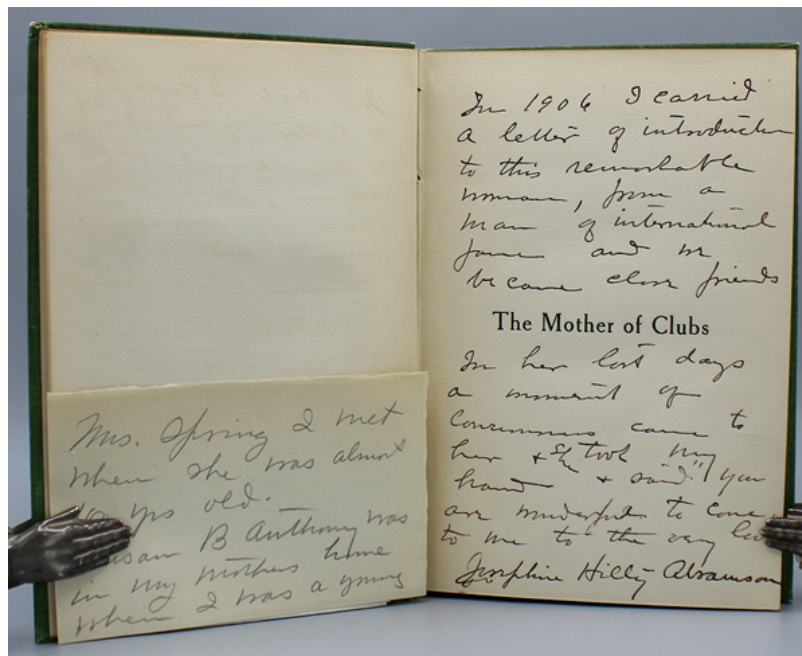 Mrs. Spring I met
when she was almost
yrs old.
Susan B Anthony was
in my mothers home
when I was a young
In 1906 I carried
a letter of introduction
to this remarkable
woman, from a
man of international
fame and we
became close friends
The Mother of Clubs
In her last days
a moment of
consciousness came to
her & she took my
hand & said "you
are wonderful to come
to me to the very
Josephine Abramson